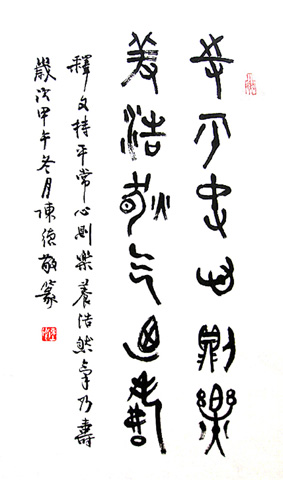 持平常心則樂
養浩然氣乃壽
釋文持平常心則樂養浩然氣乃壽
歲次甲午冬月陳德敬篆